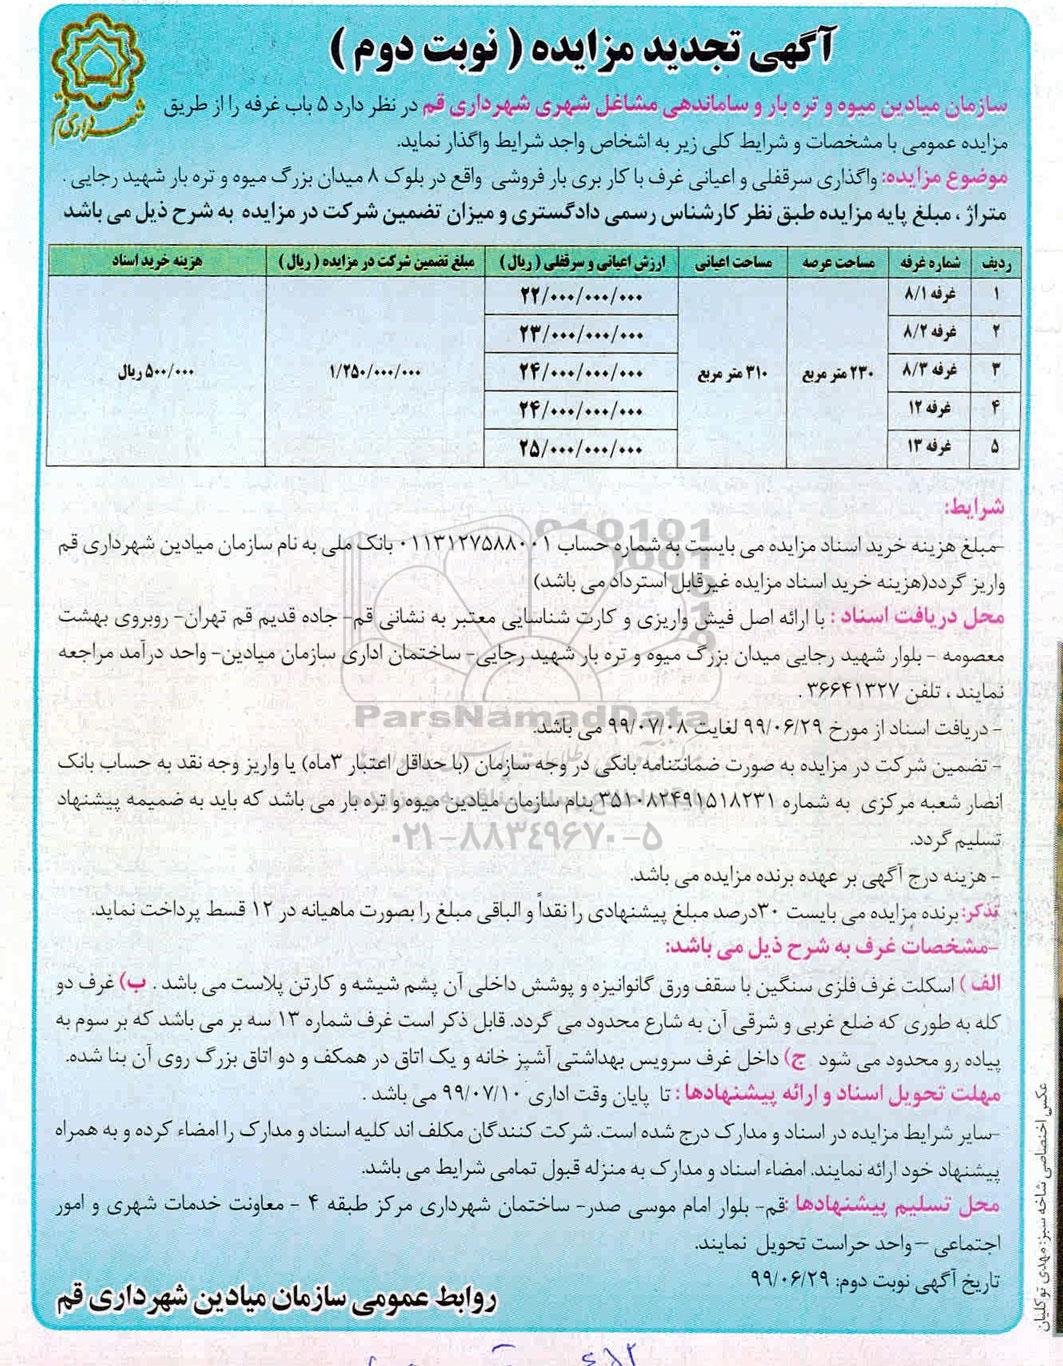 آگهی تجدید مزایده ( نوبت دوم )
شهرداری قم
سازمان میادین میوه و تره بار و ساماندهی مشاغل شهری شهرداری قم در نظر دارد ۵ باب غرفه را از طریق
مزایده عمومی با مشخصات و شرایط کلی زیر به اشخاص واجد شرایط واگذار نماید.
موضوع مزایده: واگذاری سرقفلی و اعیانی غرف با کار بری بار فروشی واقع در بلوک ۸ میدان بزرگ میوه و تره بار شهید رجایی .
متراژ ، مبلغ پایه مزایده طبق نظر کارشناس رسمی دادگستری و میزان تضمین شرکت در مزایده به شرح ذیل می باشد
ردیف شماره غرفه مساحت عرصه مساحت اعیانی ارزش اعیانی و سرقفلی ( ریال ) مبلغ تضمین شرکت در مزایده ( ریال ) هزینه خرید اسناد
۱ غرفه ۸/۱ ۲۲/۰۰۰/۰۰۰/۰۰۰
۲ غرفه ۸/۲ ۲۳/۰۰۰/۰۰۰/۰۰۰
۳ غرفه ۸/۳ ۲۳۰ متر مربع ۳۱۰ متر مربع ۲۴/۰۰۰/۰۰۰/۰۰۰ ۱/۲۵۰/۰۰۰/۰۰۰ ۵۰۰/۰۰۰ ریال
۴ غرفه ۱۲ ۲۴/۰۰۰/۰۰۰/۰۰۰
۵ غرفه ۱۳ ۲۵/۰۰۰/۰۰۰/۰۰۰
شرایط:
-مبلغ هزینه خرید اسناد مزایده می بایست به شماره حساب ۰۱۱۳۱۲۷۵۸۸۰۰۱ بانک ملی به نام سازمان میادین شهرداری قم
واریز گردد(هزینه خرید اسناد مزایده غیرقابل استرداد می باشد)
محل دریافت اسناد : با ارائه اصل فیش واریزی و کارت شناسایی معتبر به نشانی قم- جاده قدیم قم تهران- روبروی بهشت
معصومه - بلوار شهید رجایی میدان بزرگ میوه و تره بار شهید رجایی- ساختمان اداری سازمان میادین- واحد درآمد مراجعه
نمایند ، تلفن ۳۶۶۴۱۳۲۷ .
ParsNamadData
- دریافت اسناد از مورخ ۹۹/۰۶/۲۹ لغایت ۹۹/۰۷/۰۸ می باشد.
- تضمین شرکت در مزایده به صورت ضمانتنامه بانکی در وجه سازمان (با حداقل اعتبار ۳ماه) یا واریز وجه نقد به حساب بانک
انصار شعبه مرکزی به شماره ۳۵۱۰۸۲۴۹۱۵۱۸۲۳۱ بنام سازمان میادین میوه و تره بار می باشد که باید به ضمیمه پیشنهاد
تسلیم گردد.
۰۲۱-۸۸۳۴۹۶۷۰-۵
- هزینه درج آگهی بر عهده برنده مزایده می باشد.
تذکر: برنده مزایده می بایست ۳۰درصد مبلغ پیشنهادی را نقداً و الباقی مبلغ را بصورت ماهیانه در ۱۲ قسط پرداخت نماید.
-مشخصات غرف به شرح ذیل می باشد:
الف ) اسکلت غرف فلزی سنگین با سقف ورق گانوانیزه و پوشش داخلی آن پشم شیشه و کارتن پلاست می باشد . ب) غرف دو
کله به طوری که ضلع غربی و شرقی آن به شارع محدود می گردد. قابل ذکر است غرف شماره ۱۳ سه بر می باشد که بر سوم به
پیاده رو محدود می شود ج) داخل غرف سرویس بهداشتی آشپز خانه و یک اتاق در همکف و دو اتاق بزرگ روی آن بنا شده.
مهلت تحویل اسناد و ارائه پیشنهادها : تا پایان وقت اداری ۹۹/۰۷/۱۰ می باشد .
-سایر شرایط مزایده در اسناد و مدارک درج شده است. شرکت کنندگان مکلف اند کلیه اسناد و مدارک را امضاء کرده و به همراه
پیشنهاد خود ارائه نمایند. امضاء اسناد و مدارک به منزله قبول تمامی شرایط می باشد.
محل تسلیم پیشنهادها :قم- بلوار امام موسی صدر- ساختمان شهرداری مرکز طبقه ۴ - معاونت خدمات شهری و امور
اجتماعی -واحد حراست تحویل نمایند.
تاریخ آگهی نوبت دوم: ۹۹/۰۶/۲۹
روابط عمومی سازمان میادین شهرداری قم
عکس اختصاصی شاخه سبز: مهدی توکلیان